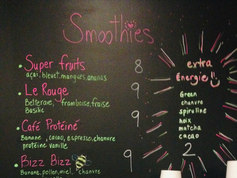 Smoothies
Super fruits 8
açaï, bleuet, mangues, ananas
Le Rouge 9
Betterave, framboise, fraise
Basilic
Café Protéiné 9
Banane, cacao, espresso, chanvre
protéine vanille
Bizz Bizz 9
Banane, pollen, miel, chanvre
extra
Énergie!!
Green
chanvre
spiruline
noix
matcha
cacao
2